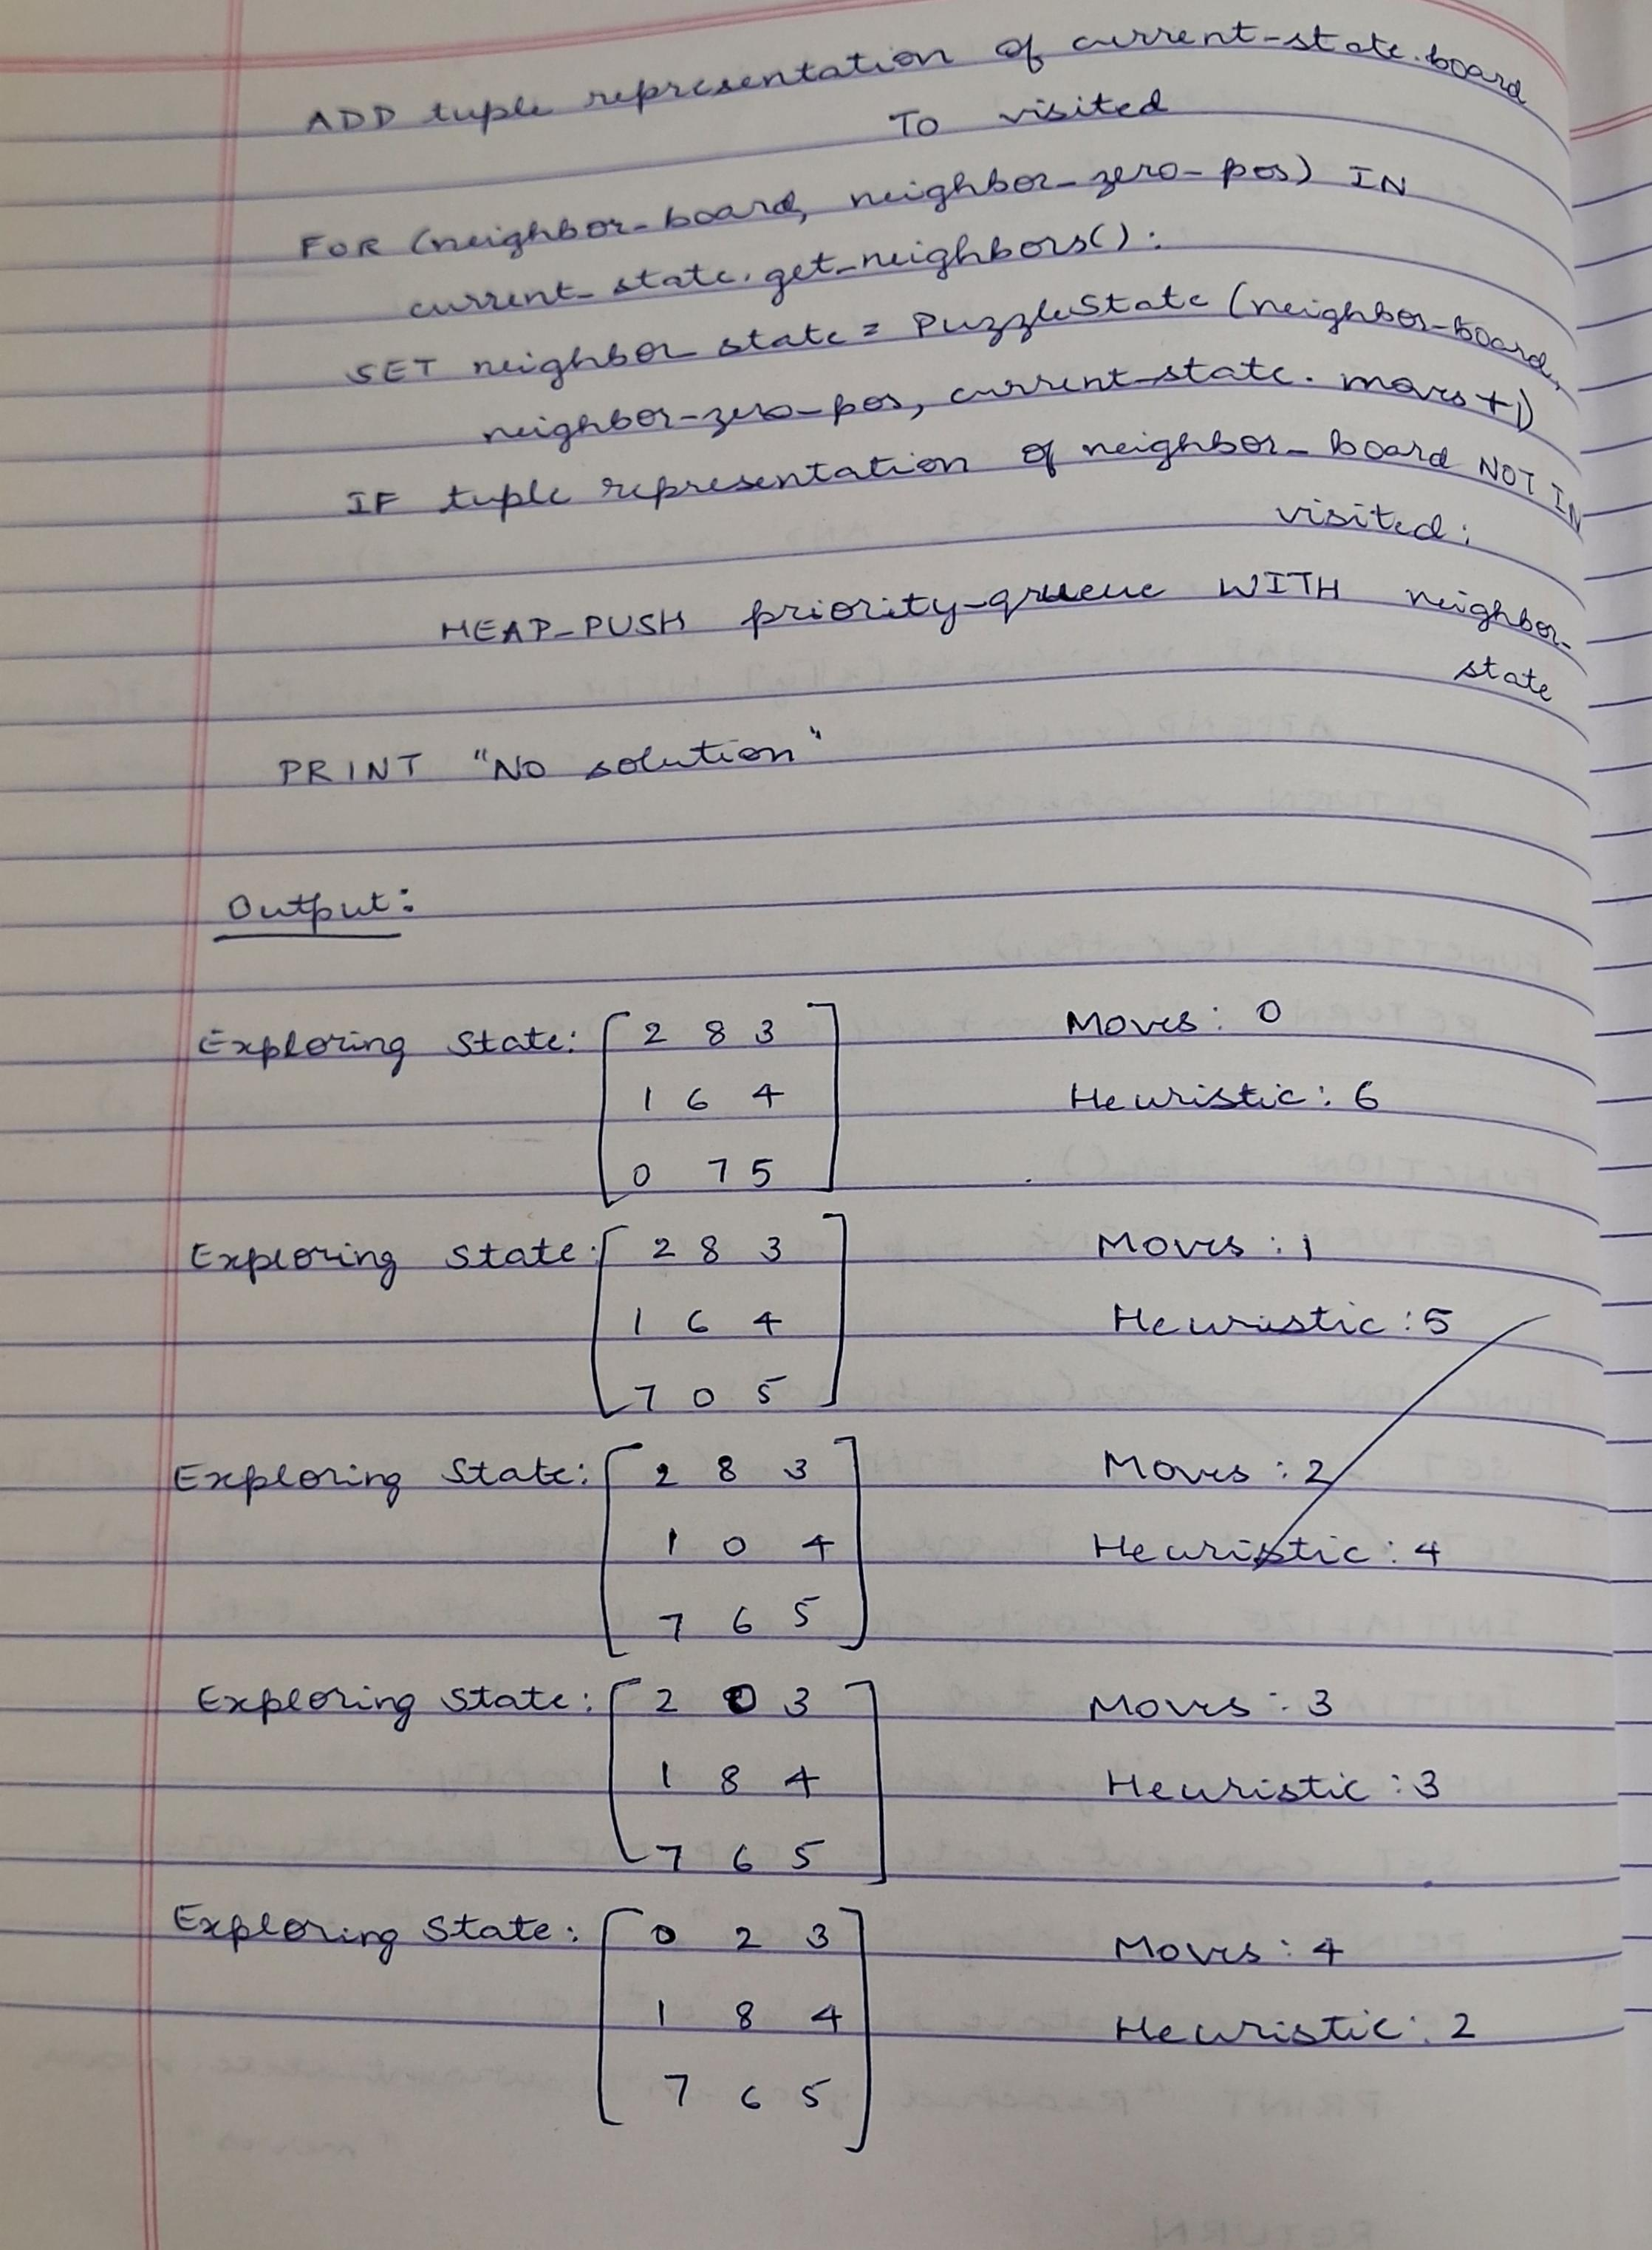 ADD tuple representation of current-state.board
TO visited
FOR (neighbor-board, neighbor-zero-pos) IN
current-state.get-neighbors():
SET neighbor-state = PuzzleState (neighbor-board,
neighbor-zero-pos, current-state.moves+1)
IF tuple representation of neighbor-board NOT IN
visited:
HEAP-PUSH priority-queue WITH neighbor-
state
PRINT "No solution"
Output:
Exploring State: 2 8 3 Moves: 0
1 6 4 Heuristic: 6
0 7 5
Exploring State: 2 8 3 Moves: 1
1 6 4 Heuristic: 5
7 0 5
Exploring State: 2 8 3 Moves: 2
1 0 4 Heuristic: 4
7 6 5
Exploring State: 2 0 3 Moves: 3
1 8 4 Heuristic: 3
7 6 5
Exploring State: 0 2 3 Moves: 4
1 8 4 Heuristic: 2
7 6 5